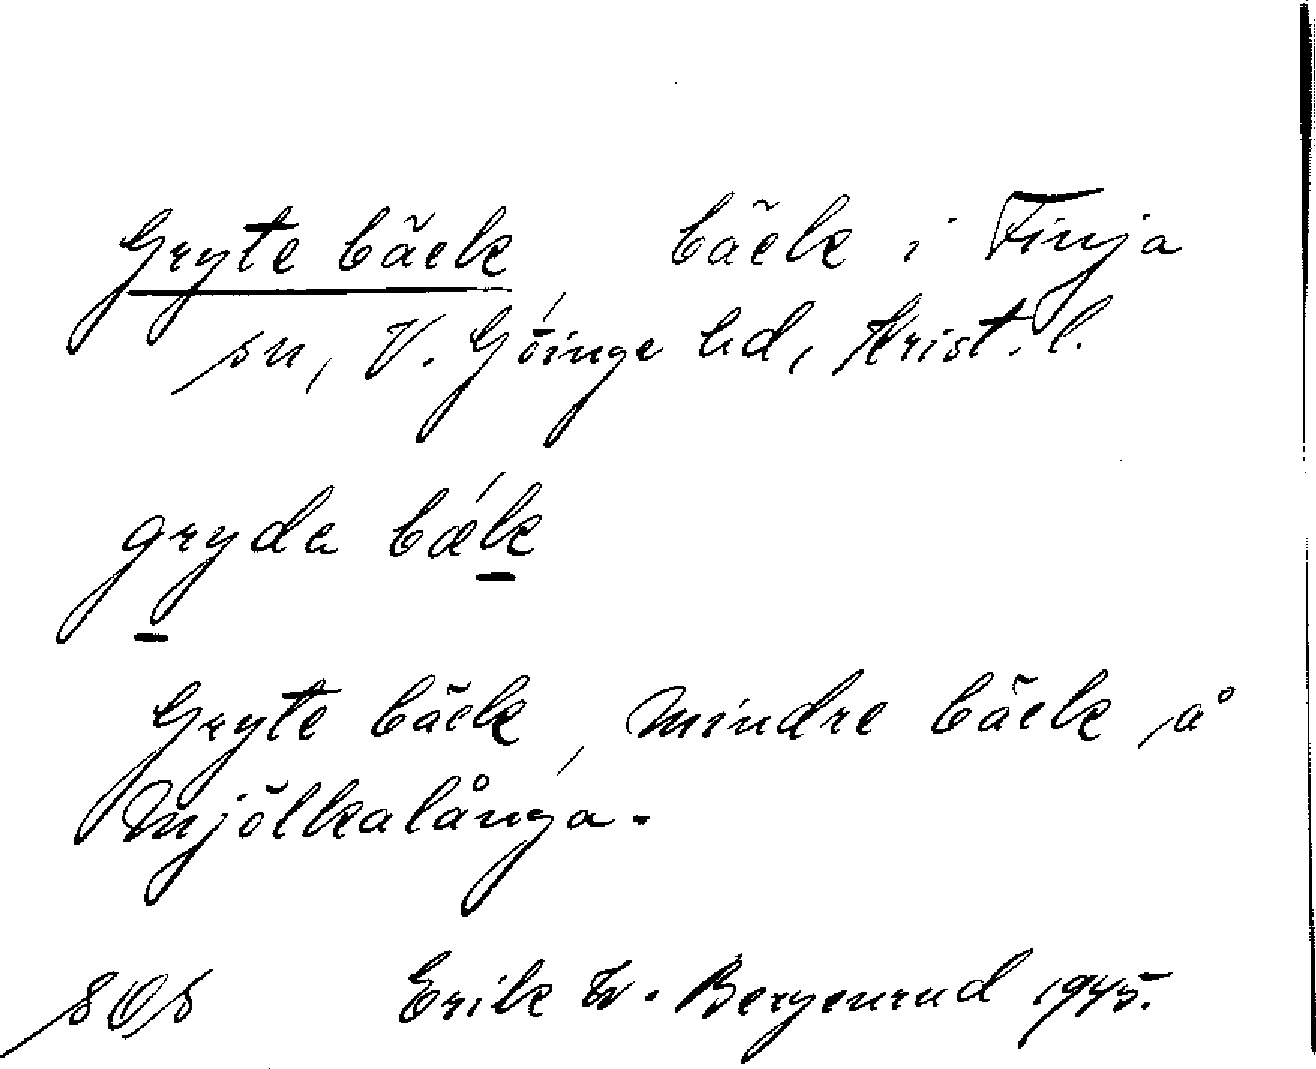 Gryte bäck, bäck i Finja
sn, V. Göinge hd, Krist. l.
gryda bæ´k
Gryte bäck, mindre bäck å
Mjölkalånga.
SOS Erik W. Bergenrud 1945.